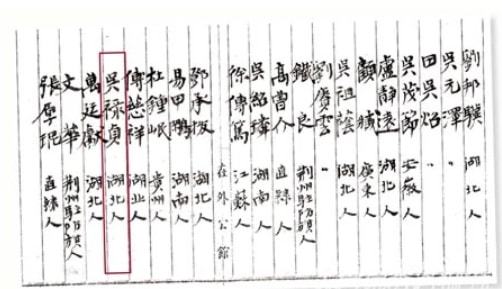 劉邦驥 湖北人
吳元澤 〃
田吳炤 〃
吳茂節 安徽人
盧靜遠 湖北人
顧臧 廣東人
吳祖蔭 湖北人
劉賡雲 〃
鐵良 荊州駐防旗人
高曹介 直隸人
吳紹璘 湖南人
徐傳篤 江蘇人
在外公館
鄧承拔 湖北人
易甲鵬 湖南人
杜鐘岷 貴州人
傅慈祥 湖北人
吳祿貞 湖北人
萬廷獻 湖北人
文華 荊州駐防旗人
張厚琨 直隸人